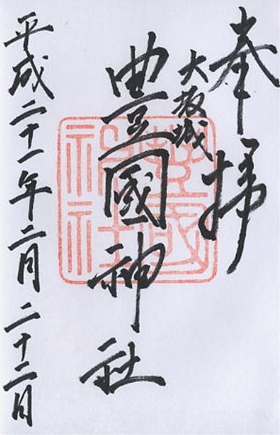 奉拝
大阪城
豊國神社
平成二十一年二月二十二日